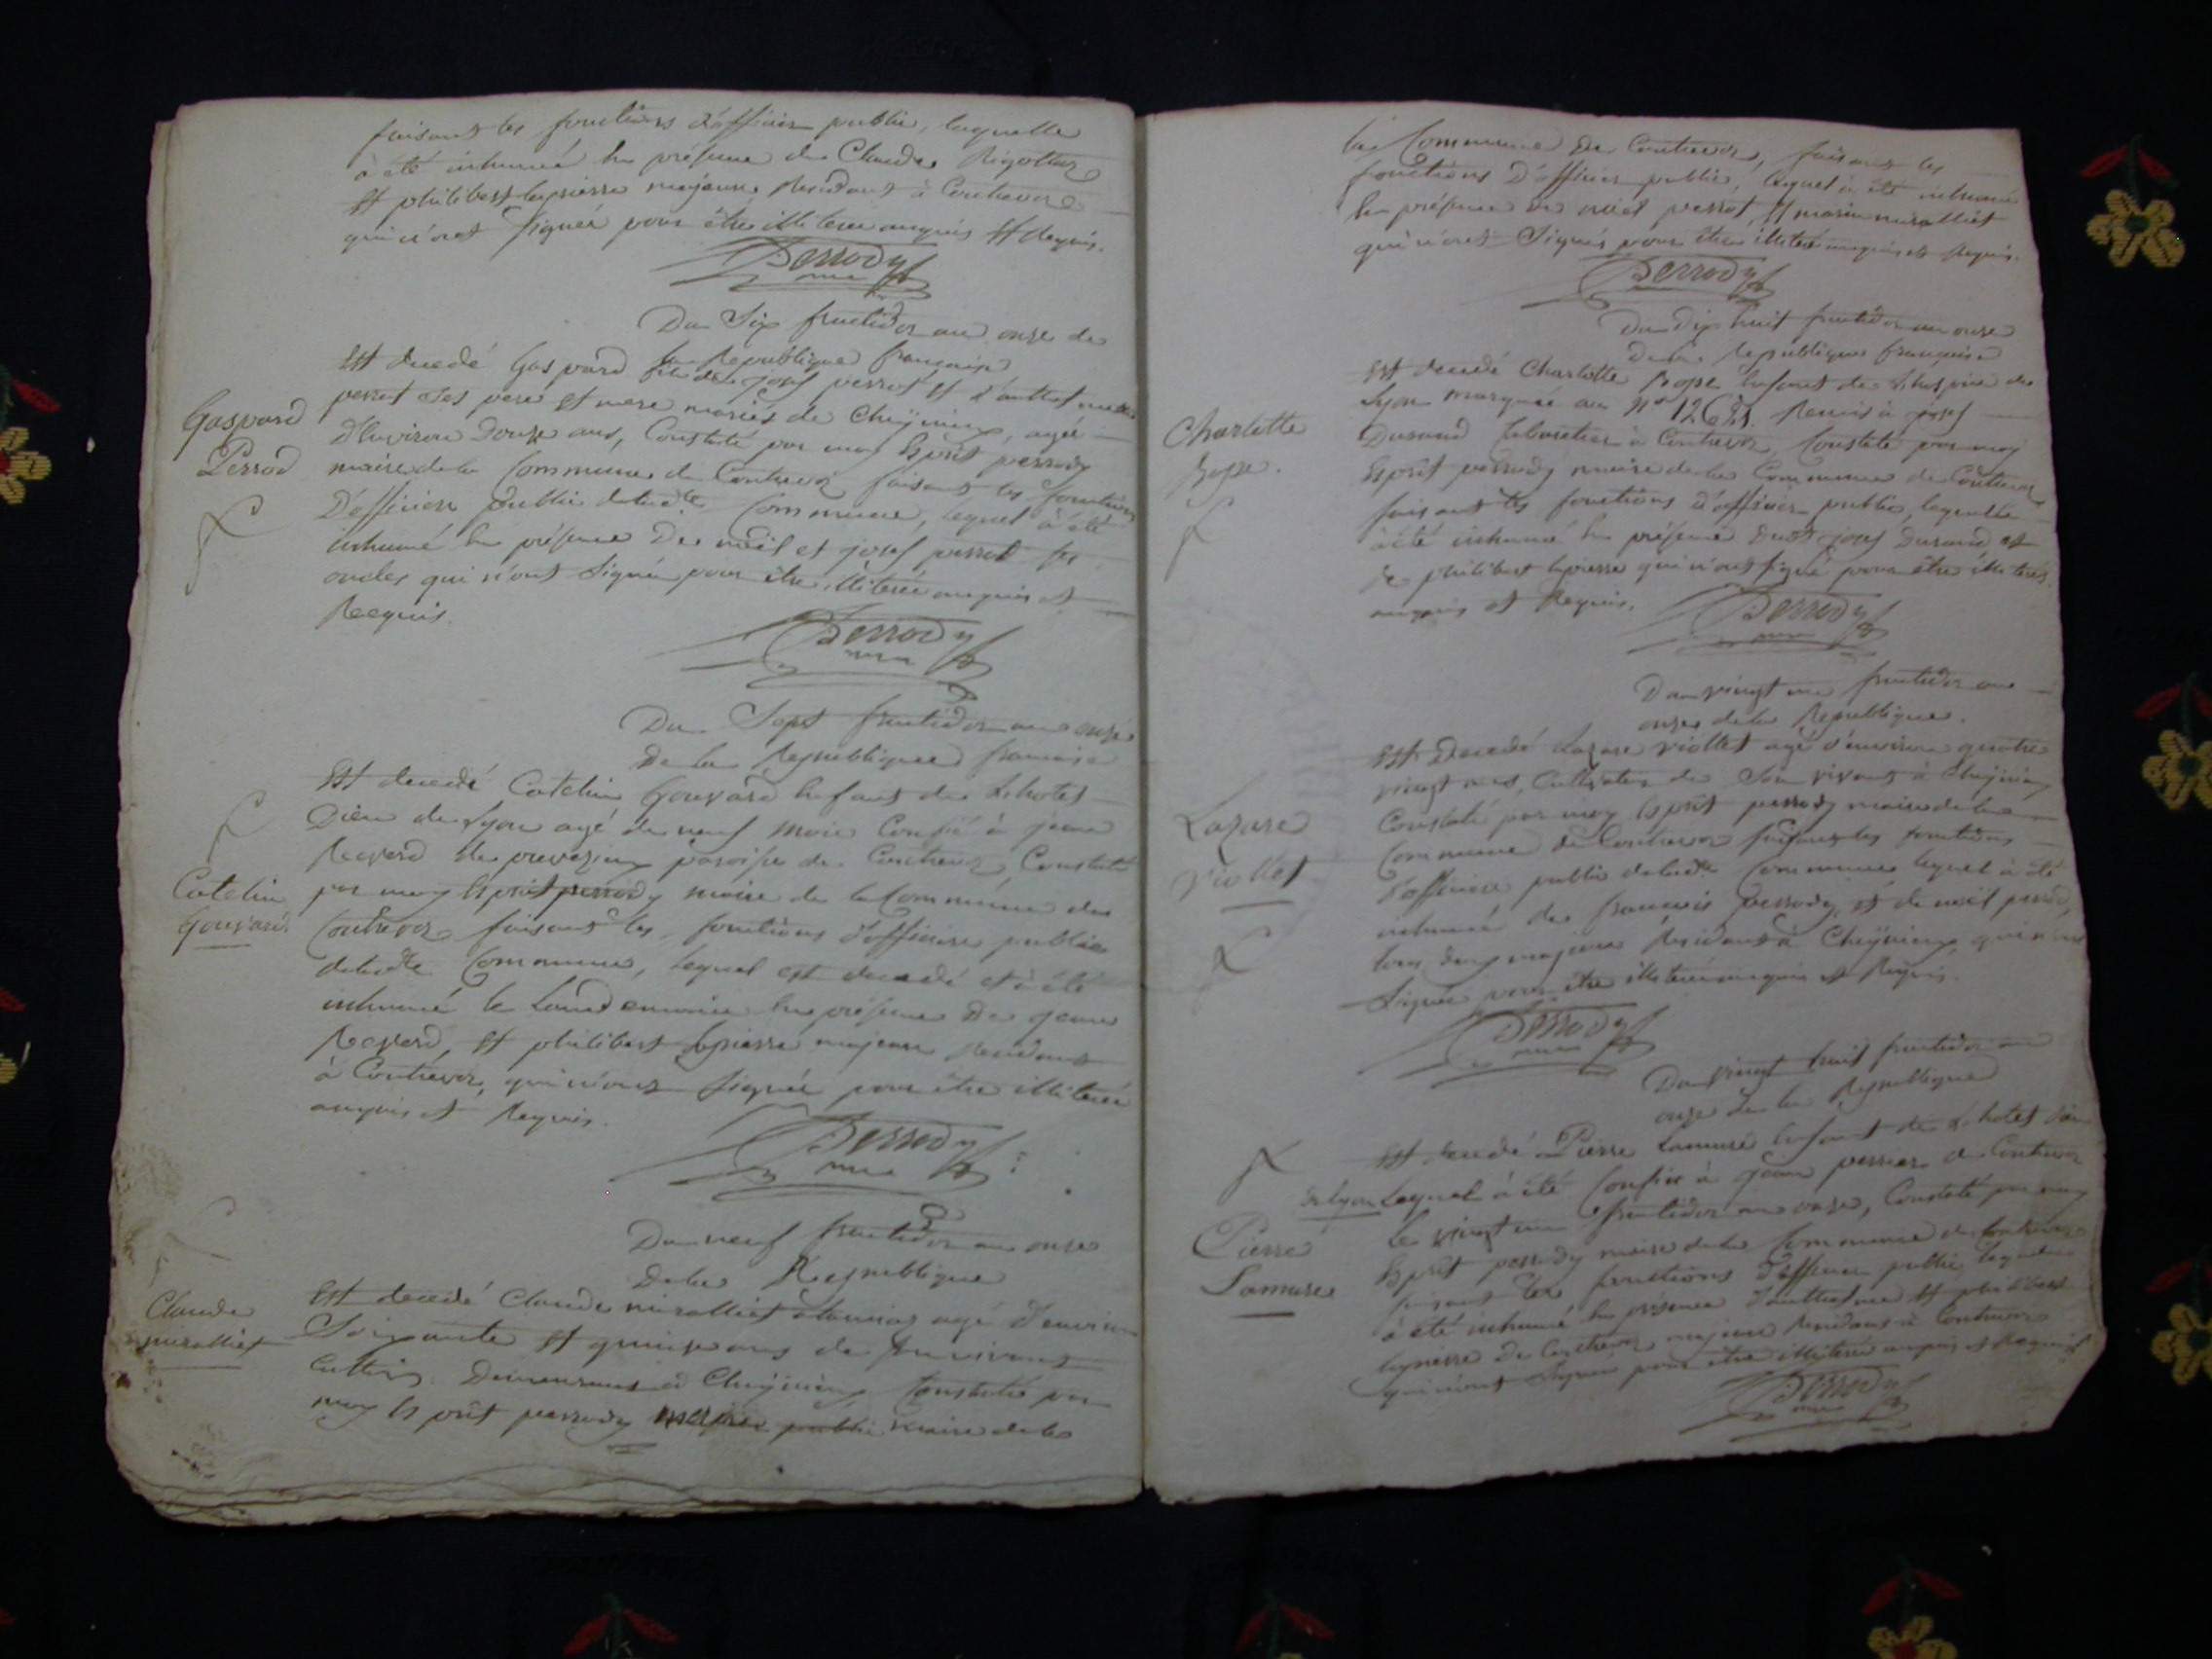 faisant les fonctions d'officier public, laquelle
à été inhumé en présence de Claude Rigottier
Et philibert lapierre majeurs Residant à Contrevoz
qui n'ont signés pour être illiterés enquis Et Requis.
Perrody
Du Six fructidor an onze de
la Republique francaise
Est decedé Gaspard fils de josef perrot Et d'
perrot ses pere Et mere mariés de Cheynieu, agé
D'Environ Douze ans, Constaté par moy Esprit perrody
maire de la Commune de Contrevoz faisant les fonctions
D'officier public de lad.te Commune, lequel à été
inhumé En présence De noël et josef perrot ses
oncles qui n'ont signé pour être illiterés enquis et
Requis.
Gaspard
Perrod
Perrody
Du Sept fructidor an onze
De la Republique francaise
Est decedé Catelin Gouvard Enfant de L'hotel
Dieu de Lyon agé de neuf mois Confié à jean
Revend de preveyzieu paroisse de Contrevoz, Constaté
par moy Esprit perrody maire de la Commune de
Contrevoz faisant les fonctions d'officier public
de lad.te Commune, lequel est decedé et à été
inhumé le Lendemain En présence De jean
Revend, Et philibert lapierre majeurs Residant
à Contrevoz, qui n'ont signés pour être illiterés
enquis et Requis.
Catelin
Gouvard
Perrody
Du neuf fructidor an onze
De la Republique
Est decedé Claude miralliet agé D'environ
Soixante Et quinze ans de son vivant
Cultiv. Demeurant à Cheynieu, Constaté par
moy Esprit perrody public maire de la
Claude
miralliet
la Commune de Contrevoz, faisant les
fonctions D'officier public, lequel à été inhumé
En présence de noël perrot, Et miralliet
qui n'ont Signés pour être illiteré enquis et Requis.
Perrody
Du dix huit fructidor an onze
De la Republique francaise
Est decedé Charlotte Enfant de L'hospice de
Lyon marquée au N° Remis à josef
Durand à Contrevoz, Constaté par moy
Esprit perrody maire de la Commune de Contrevoz
faisant les fonctions d'officier public, laquelle
à été inhumé En présence dudt josef Durand et
de philibert lapierre qui n'ont signé pour être illiterés
enquis et Requis.
Charlotte
Perrody
Du vingt un fructidor an
onze de la Republique.
Est Decedé Lazare viollet agé d'environ quatre
vingt ans, Cultivateur de Son vivant à Cheynieu
Constaté par moy Esprit perrody maire de la
Commune de Contrevoz faisant les fonctions
d'officier public de lad.te Commune lequel à été
inhumé de francois perrody, et de noël perrod
tous deux majeurs Residant à Cheynieu qui n'ont
Signés pour être illiterés enquis et Requis.
Lazare
viollet
Perrody
Du vingt huit fructidor an
onze de la Republique
Est decedé Pierre Lamure Enfant de L'hotel Dieu
de Lyon Lequel à été Confié à jean perrier de Contrevoz
le vingt un fructidor an onze, Constaté par moy
Esprit perrody maire de la Commune de Contrevoz
faisant les fonctions d'officier public lequel
à été inhumé En présence Et philibert
lapierre De Contrevoz majeurs Residant à Contrevoz
qui n'ont Signés pour être illiterés enquis et Requis
Pierre
Lamure
Perrody